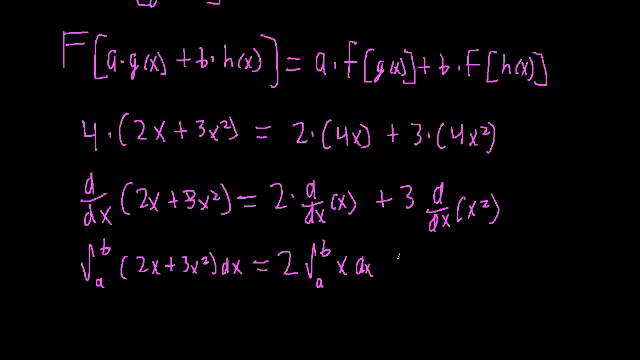 F[a·g(x) + b·h(x)] = a·F[g(x)] + b·F[h(x)]
4·(2x + 3x²) = 2·(4x) + 3·(4x²)
d/dx (2x + 3x²) = 2·d/dx (x) + 3 d/dx (x²)
∫ₐᵇ (2x + 3x²) dx = 2 ∫ₐᵇ x dx